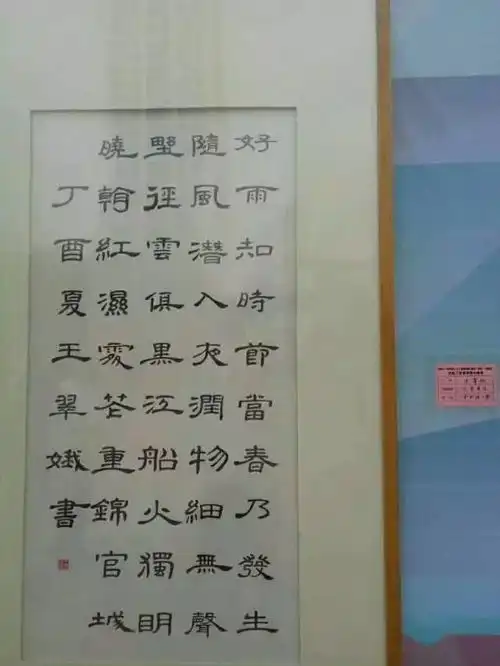 好雨知時節當春乃發生
隨風潛入夜潤物細無聲
野徑雲俱黑江船火獨明
曉看紅濕處花重錦官城
丁酉夏王翠娥書